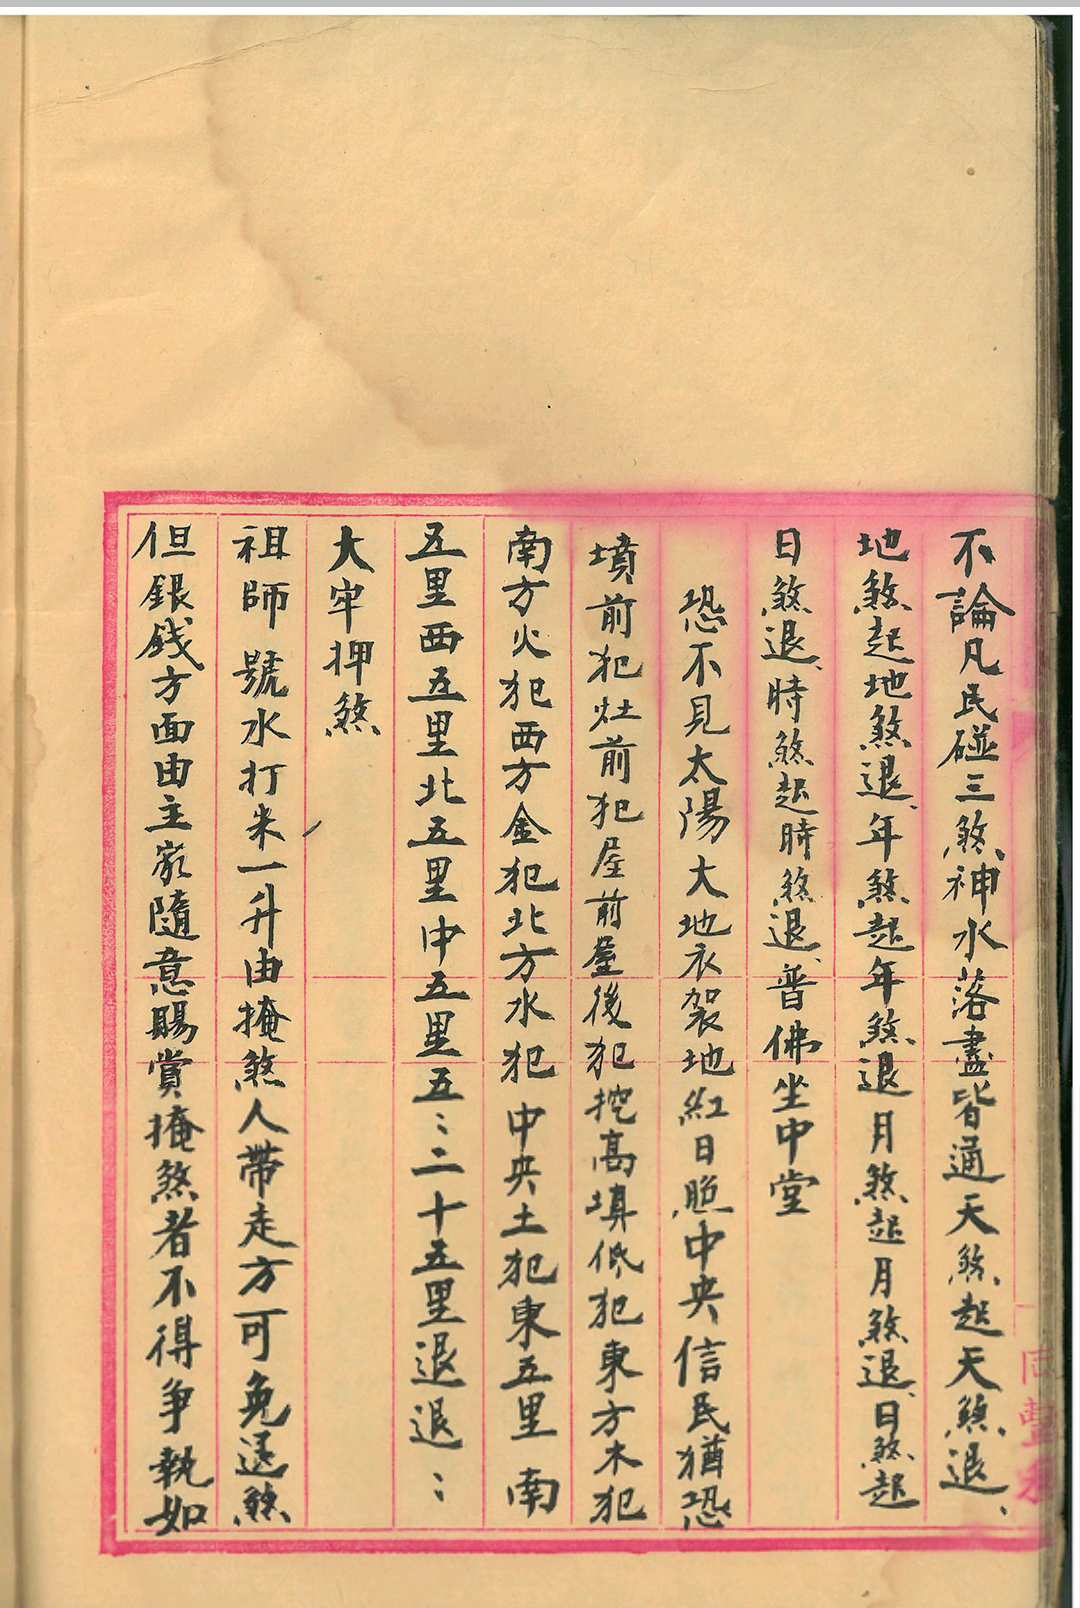 不論凡民碰三煞神水落盡皆通天煞起天煞退、
地煞起地煞退、年煞起年煞退月煞起月煞退、日煞起
日煞退、時煞起時煞退、普佛坐中堂
恐不見太陽大地衣袈地紅日照中央信民猶恐
墳前犯灶前犯屋前屋後犯挖高填低犯東方木犯
南方火犯西方金犯北方水犯中央土犯東五里南
五里西五里北五里中五里五:二十五里退退:
大牢押煞
祖師號水打米一升由掩煞人帶走方可免送煞
但銀錢方面由主家隨意賜賞掩煞者不得爭執如